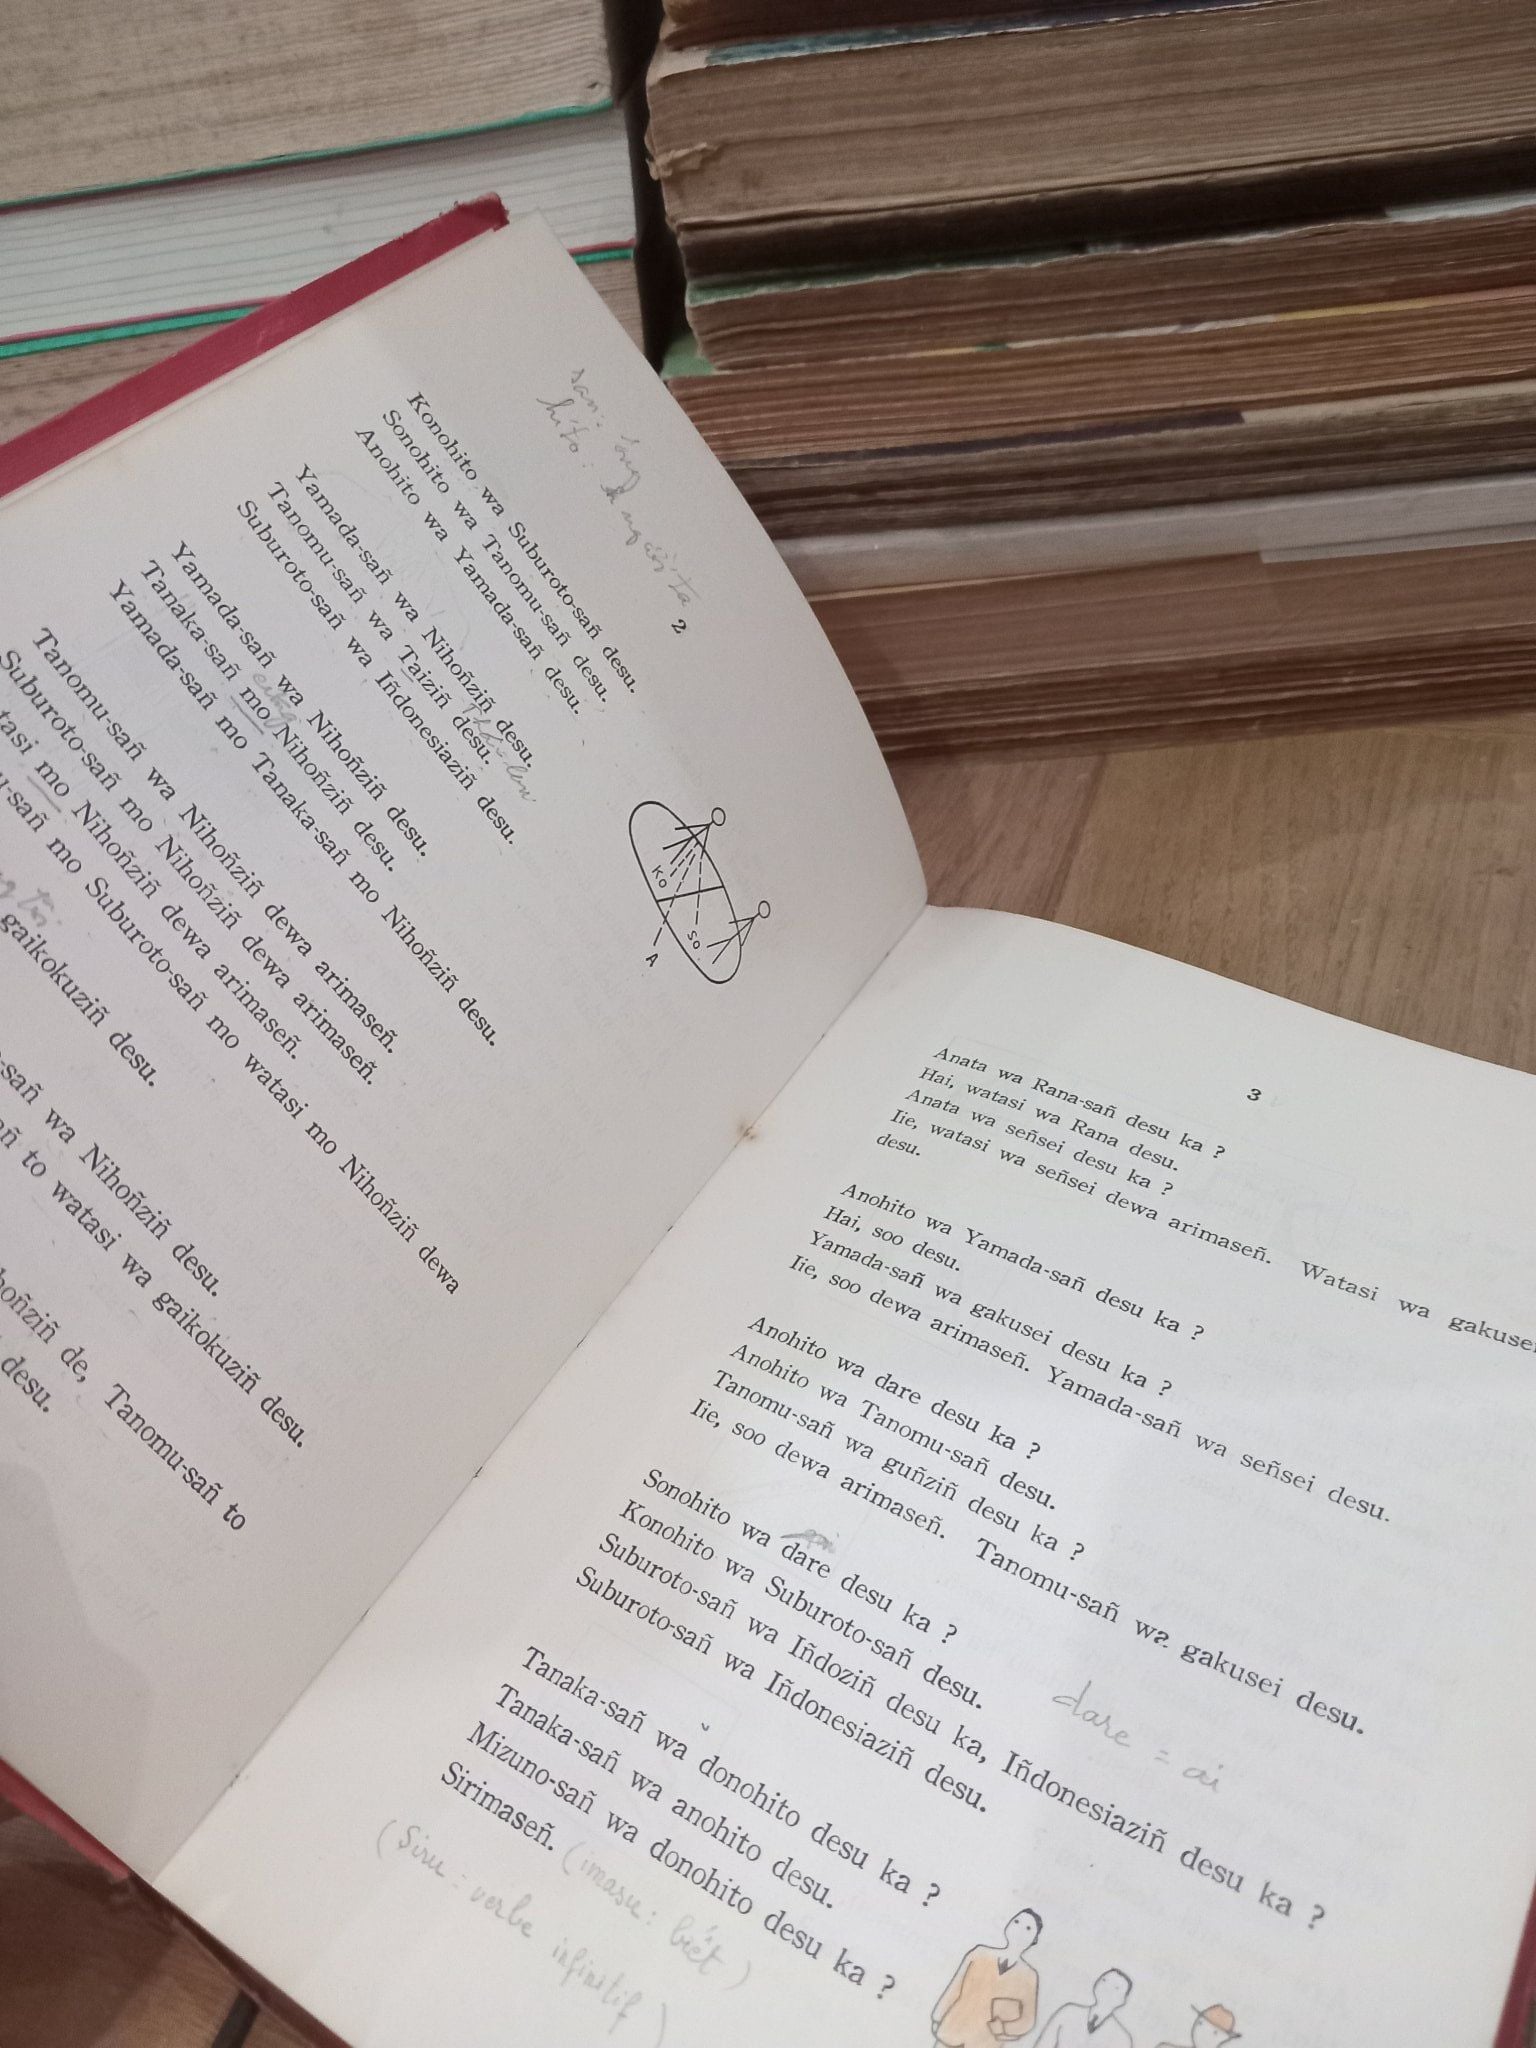 san:
hito:
2
Konohito wa Suburoto-sañ desu.
Sonohito wa Tanomu-sañ desu.
Anohito wa Yamada-sañ desu.
Yamada-sañ wa Nihoñziñ desu.
Tanomu-sañ wa Taiziñ desu.
Suburoto-sañ wa Iñdonesiaziñ desu.
Yamada-sañ wa Nihoñziñ desu.
Tanaka-sañ mo Nihoñziñ desu.
Yamada-sañ mo Tanaka-sañ mo Nihoñziñ desu.
Tanomu-sañ wa Nihoñziñ dewa arimaseñ.
Suburoto-sañ mo Nihoñziñ dewa arimaseñ.
mo Nihoñziñ dewa arimaseñ.
mo Suburoto-sañ mo watasi mo Nihoñziñ dewa
gaikokuziñ desu.
wa Nihoñziñ desu.
to watasi wa gaikokuziñ desu.
de, Tanomu-sañ to
desu.
KO
SO
A
3
Anata wa Rana-sañ desu ka ?
Hai, watasi wa Rana desu.
Anata wa señsei desu ka ?
Iie, watasi wa señsei dewa arimaseñ. Watasi wa
desu.
Anohito wa Yamada-sañ desu ka ?
Hai, soo desu.
Yamada-sañ wa gakusei desu ka ?
Iie, soo dewa arimaseñ. Yamada-sañ wa señsei desu.
Anohito wa dare desu ka ?
Anohito wa Tanomu-sañ desu.
Tanomu-sañ wa guñziñ desu ka ?
Iie, soo dewa arimaseñ. Tanomu-sañ wa gakusei desu.
Sonohito wa dare desu ka ?
Konohito wa Suburoto-sañ desu.
Suburoto-sañ wa Iñdoziñ desu ka, Iñdonesiaziñ desu ka ?
Suburoto-sañ wa Iñdonesiaziñ desu.
dare = ai
Tanaka-sañ wa donohito desu ka ?
Tanaka-sañ wa anohito desu.
Mizuno-sañ wa donohito desu ka ?
Sirimaseñ. (imasu: biết)
(Siru: verbe infinitif)